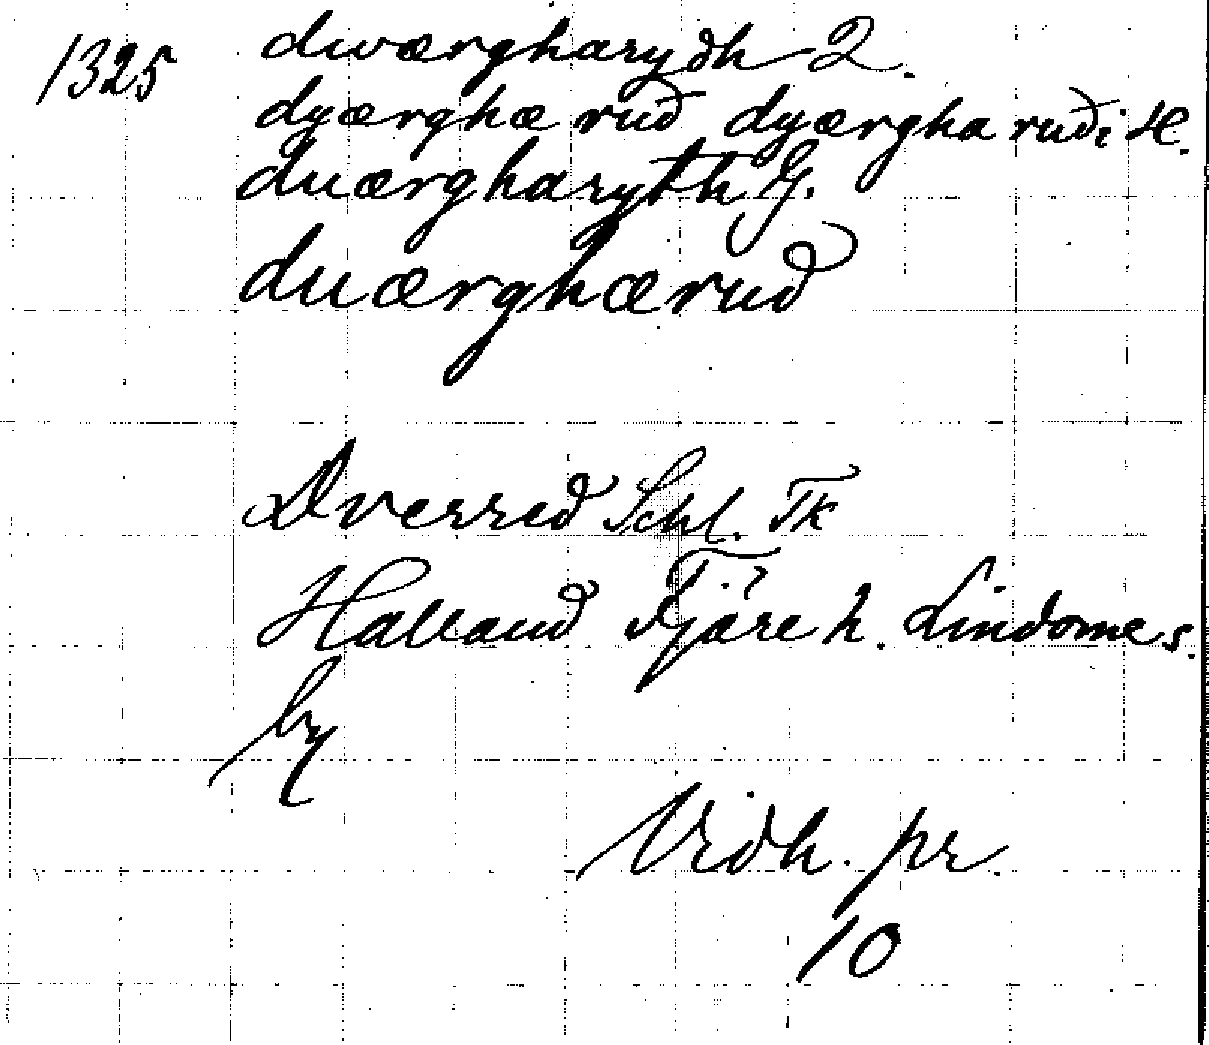 1325 dværgharydh 2.
dyærghæ rud dyærgha rudi H.
duærgharyth G.
duærghærud
Dverred Schl. TK
Halland Fjäre h. Lindome s.
by
Vidh. pr.
10